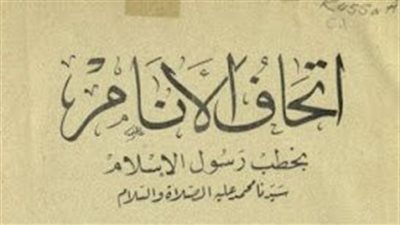 اتحاف الأنام
بخطب رسول الإسلام
سيدنا محمد عليه الصلاة والسلام